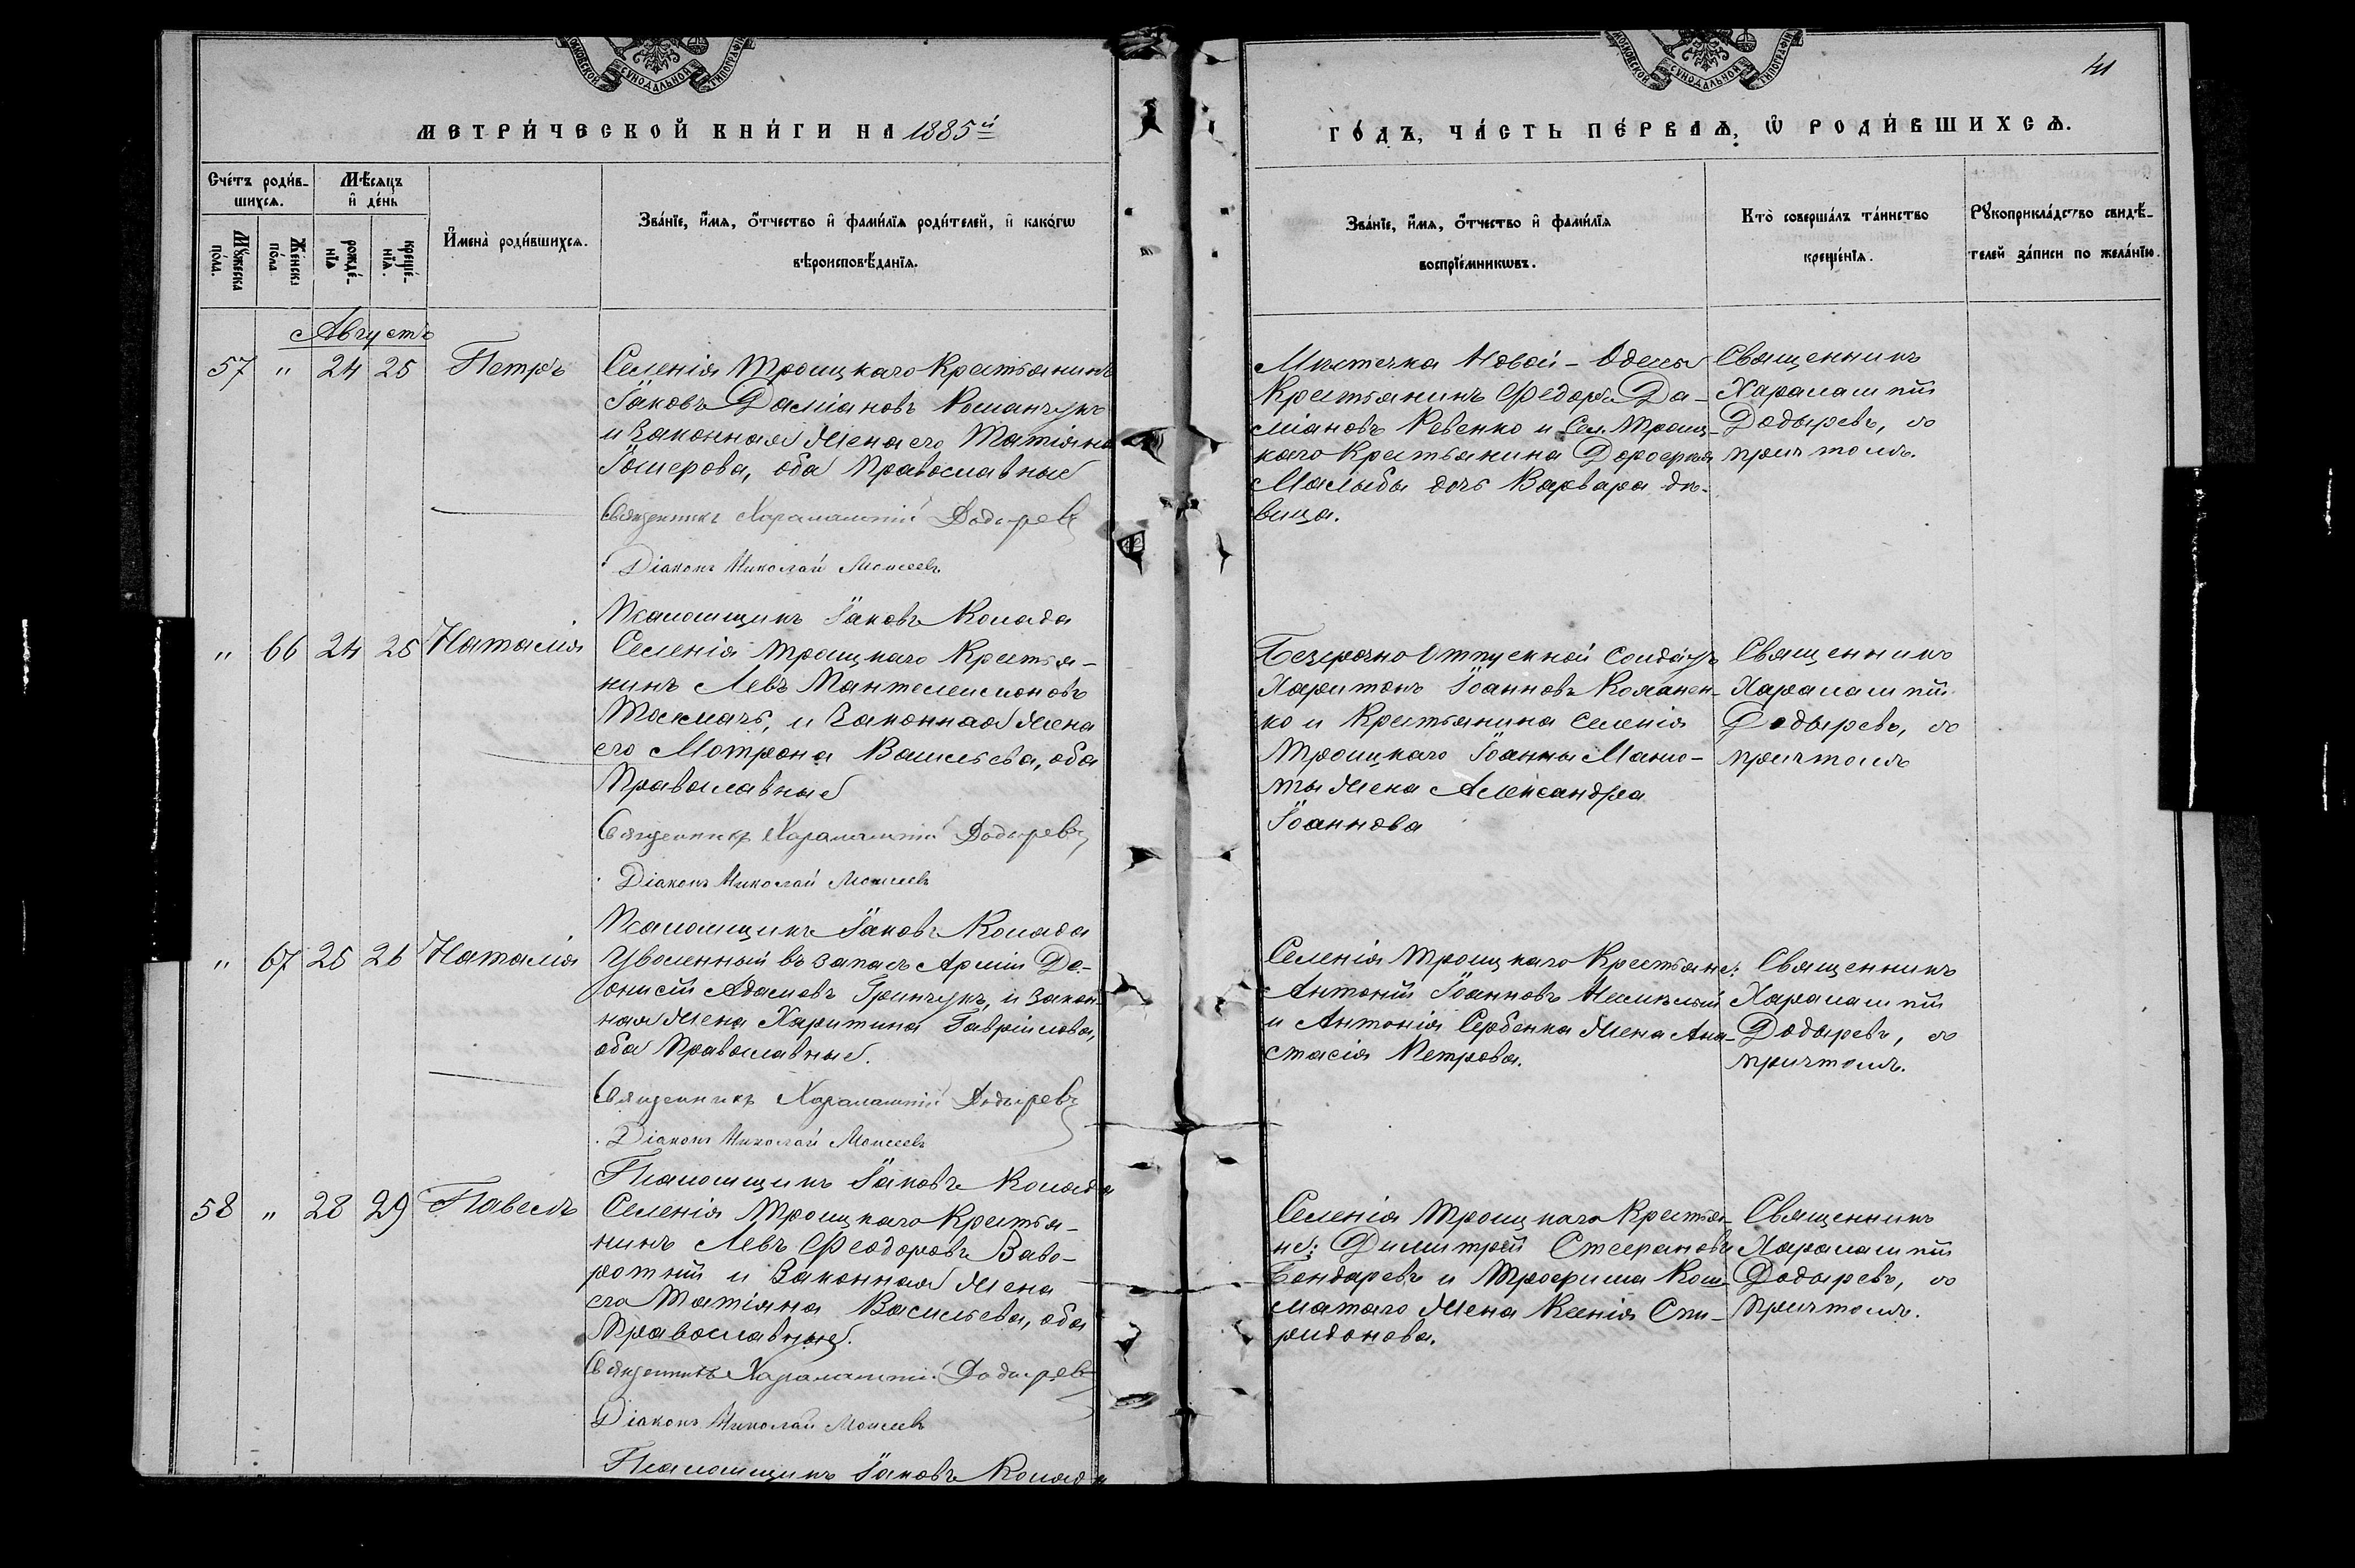 МОСКОВСКОЙ СУНОДАЛЬНОЙ ТИПОГРАФІИ
МЕТРИ́ЧЕСКОЙ КНИ́ГИ НА 1885й
Сче́тъ роди́в-
шихсѧ.
Мѣ́сяцъ
и҆ де́нь
Мꙋ́жеска
по́ла.
Же́нска
по́ла
рожде́-
нїѧ
креще́-
нїѧ.
И҆мена̀ роди́вшихсѧ.
Зва́нїе, и҆́мѧ, ѻ҆́тчество и҆ фами́лїѧ роди́телей, и҆ како́гѡ
вѣроисповѣ́данїѧ.
Августъ
57 " 24 25 Петръ
Селенія Троицкаго Крестьянинъ
Іаковъ Даміановъ Романчукъ
и Законная Жена его Татіяна
Гомерова, оба Православные
Священникъ Харалампій Додыревъ
Діаконъ Николай Моисеевъ
Псаломщикъ Іаковъ Колада
" 66 24 25 Наталія
Селенія Троицкаго Крестья-
нинъ Левъ Пантелеимоновъ
Токмачъ, и Законная Жена
его Мотрона Васильева, оба
Православные
Священникъ Харалампій Додыревъ
Діаконъ Николай Моисеевъ
Псаломщикъ Іаковъ Колада
" 67 25 26 Наталія
Уволенный въ запасъ Арміи Де-
онисій Адамовъ Гринчукъ, и закон-
ная Жена Харитина Гавріилова,
оба Православные.
Священникъ Харалампій Додыревъ
Діаконъ Николай Моисеевъ
Псаломщикъ Іаковъ Колада
58 " 28 29 Павелъ
Селенія Троицкаго Крестья-
нинъ Левъ Феодоровъ Заво-
ротній и Законная Жена
его Татіяна Васильева, оба
Православные.
Священникъ Харалампій Додыревъ
Діаконъ Николай Моисеевъ
Псаломщикъ Іаковъ Колада
МОСКОВСКОЙ СУНОДАЛЬНОЙ ТИПОГРАФІИ
41
ГО́ДЪ, ЧА́СТЬ ПЕ́РВАѦ, Ѡ҆ РОДИ́ВШИХСѦ.
Зва́нїе, и҆́мѧ, ѻ҆́тчество и҆ фами́лїѧ
воспрїе́мникѡвъ.
Кто̀ соверша́лъ та́инство
креще́нїѧ.
Рꙋкоприкла́дство свидѣ́-
телей за́писи по жела́нїю.
Мѣстечка Новой-Одессы
Крестьянинъ Федоръ Да-
міановъ Ревенко и Сел. Троиц-
каго Крестьянина Дорофея
Малыба дочь Варвара дѣ-
вица.
Священникъ
Харалампій
Додыревъ, съ
причтомъ.
Безсрочно Отпускной Солдатъ
Харитонъ Іоанновъ Романен-
ко и Крестьянина Селенія
Троицкаго Іоанна Мано-
ты Жена Александра
Іоаннова
Священникъ
Харалампій
Додыревъ, съ
причтомъ
Селенія Троицкаго Крестьяне:
Антоній Іоанновъ
и Антонія Сербенка Жена Ана-
стасія Петрова.
Священникъ
Харалампій
Додыревъ, съ
причтомъ.
Селенія Троицкаго Крестья-
не: Димитрій Стефановъ
Бондаревъ и Трофима Кош-
матаго Жена Ксенія Спи-
ридонова.
Священникъ
Харалампій
Додыревъ, съ
Причтомъ.